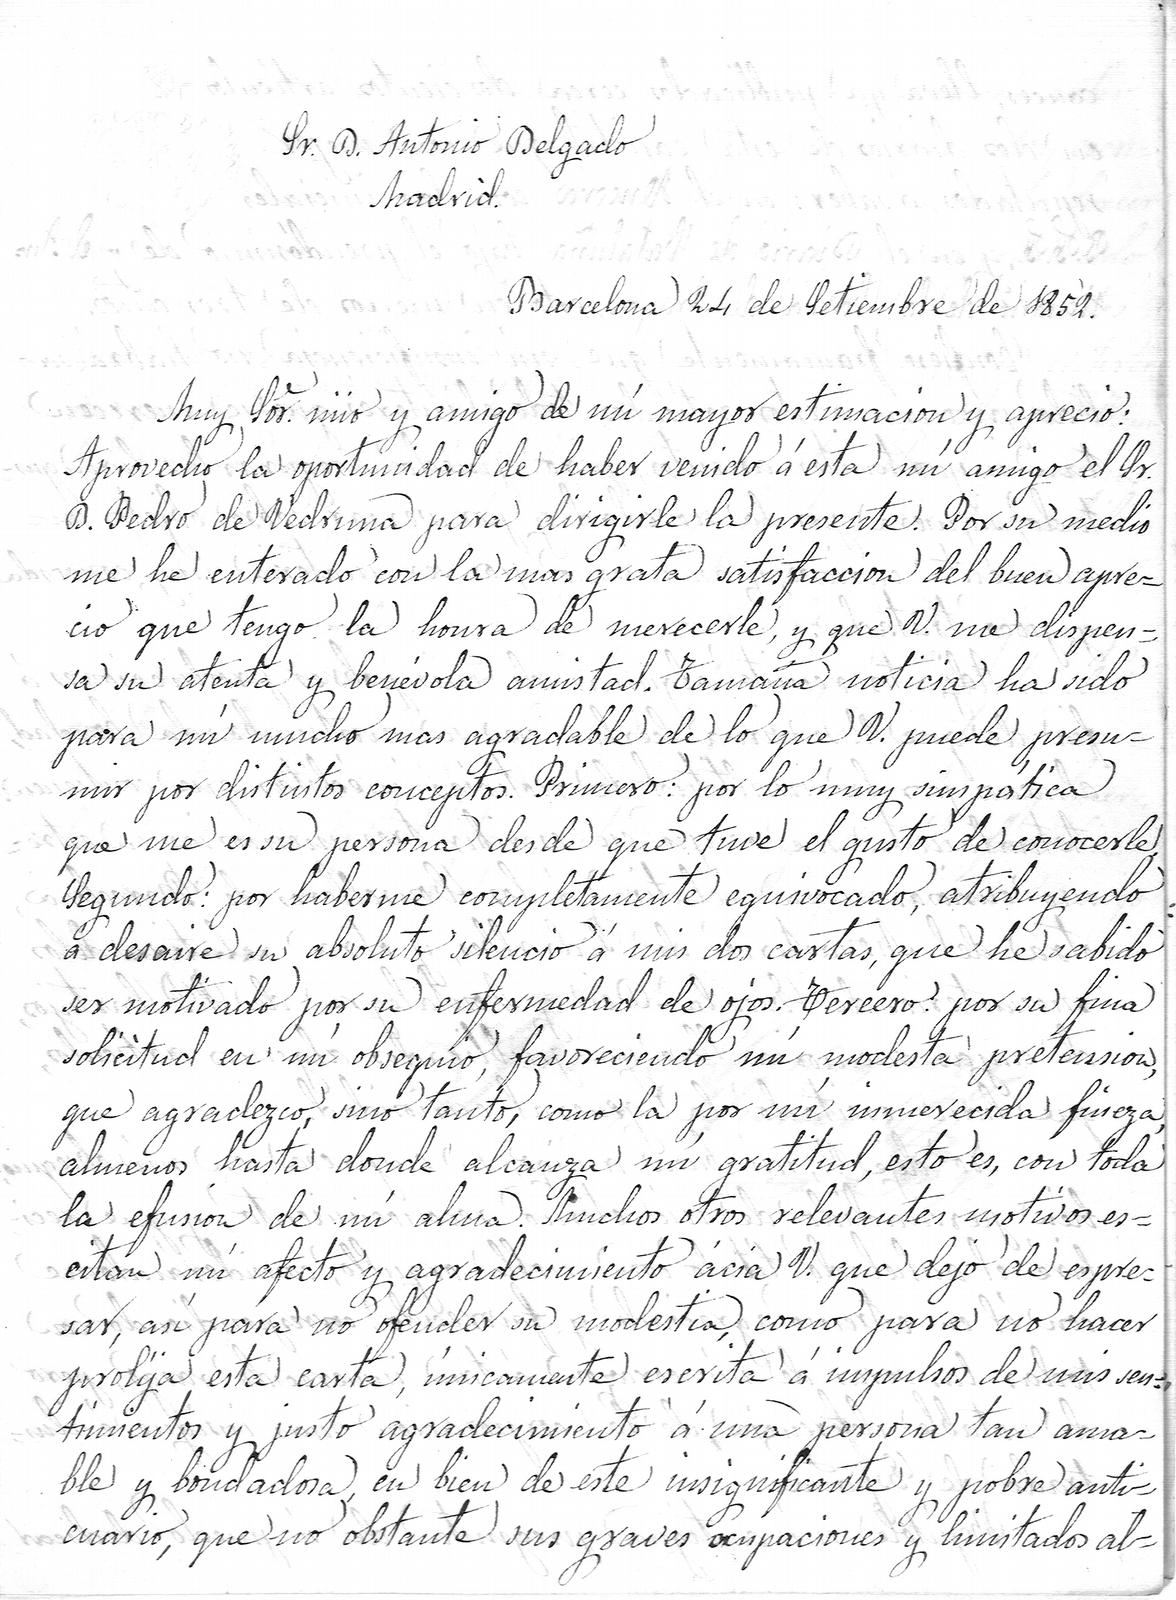 Sr. D. Antonio Delgado
Madrid.
Barcelona 24 de Setiembre de 1852.
Muy Sór. mio y amigo de mi mayor estimacion y aprecio:
Aprovecho la oportunidad de haber venido á esta mi amigo el Sr.
D. Pedro de Vedruna para dirigirle la presente. Por su medio
me he enterado con la mas grata satisfaccion del buen apre=
cio que tengo la honra de merecerle, y que V. me dispen=
sa su atenta y benévola amistad. Tamaña noticia ha sido
para mi mucho mas agradable de lo que V. puede presu=
mir por distintos conceptos. Primero: por lo muy simpática
que me es su persona desde que tuve el gusto de conocerle.
Segundo: por haberme completamente equivocado, atribuyendo
a desaire su absoluto silencio á mis dos cartas, que he sabido
ser motivado por su enfermedad de ojos. Tercero: por su fina
solicitud en mi obsequio, favoreciendo mi modesta pretension,
que agradezco, sino tanto, como la por mi inmerecida fineza,
almenos hasta donde alcanza mi gratitud, esto es, con toda
la efusion de mi alma. Muchos otros relevantes motivos es=
citan mi afecto y agradecimiento ácia V. que dejo de espre=
sar, asi para no ofender su modestia, como para no hacer
prolija esta carta, únicamente escrita á impulsos de mis sen=
timientos y justo agradecimiento á una persona tan ama=
ble y bondadosa, en bien de este insignificante y pobre anti=
cuario, que no obstante sus graves ocupaciones y limitados al=